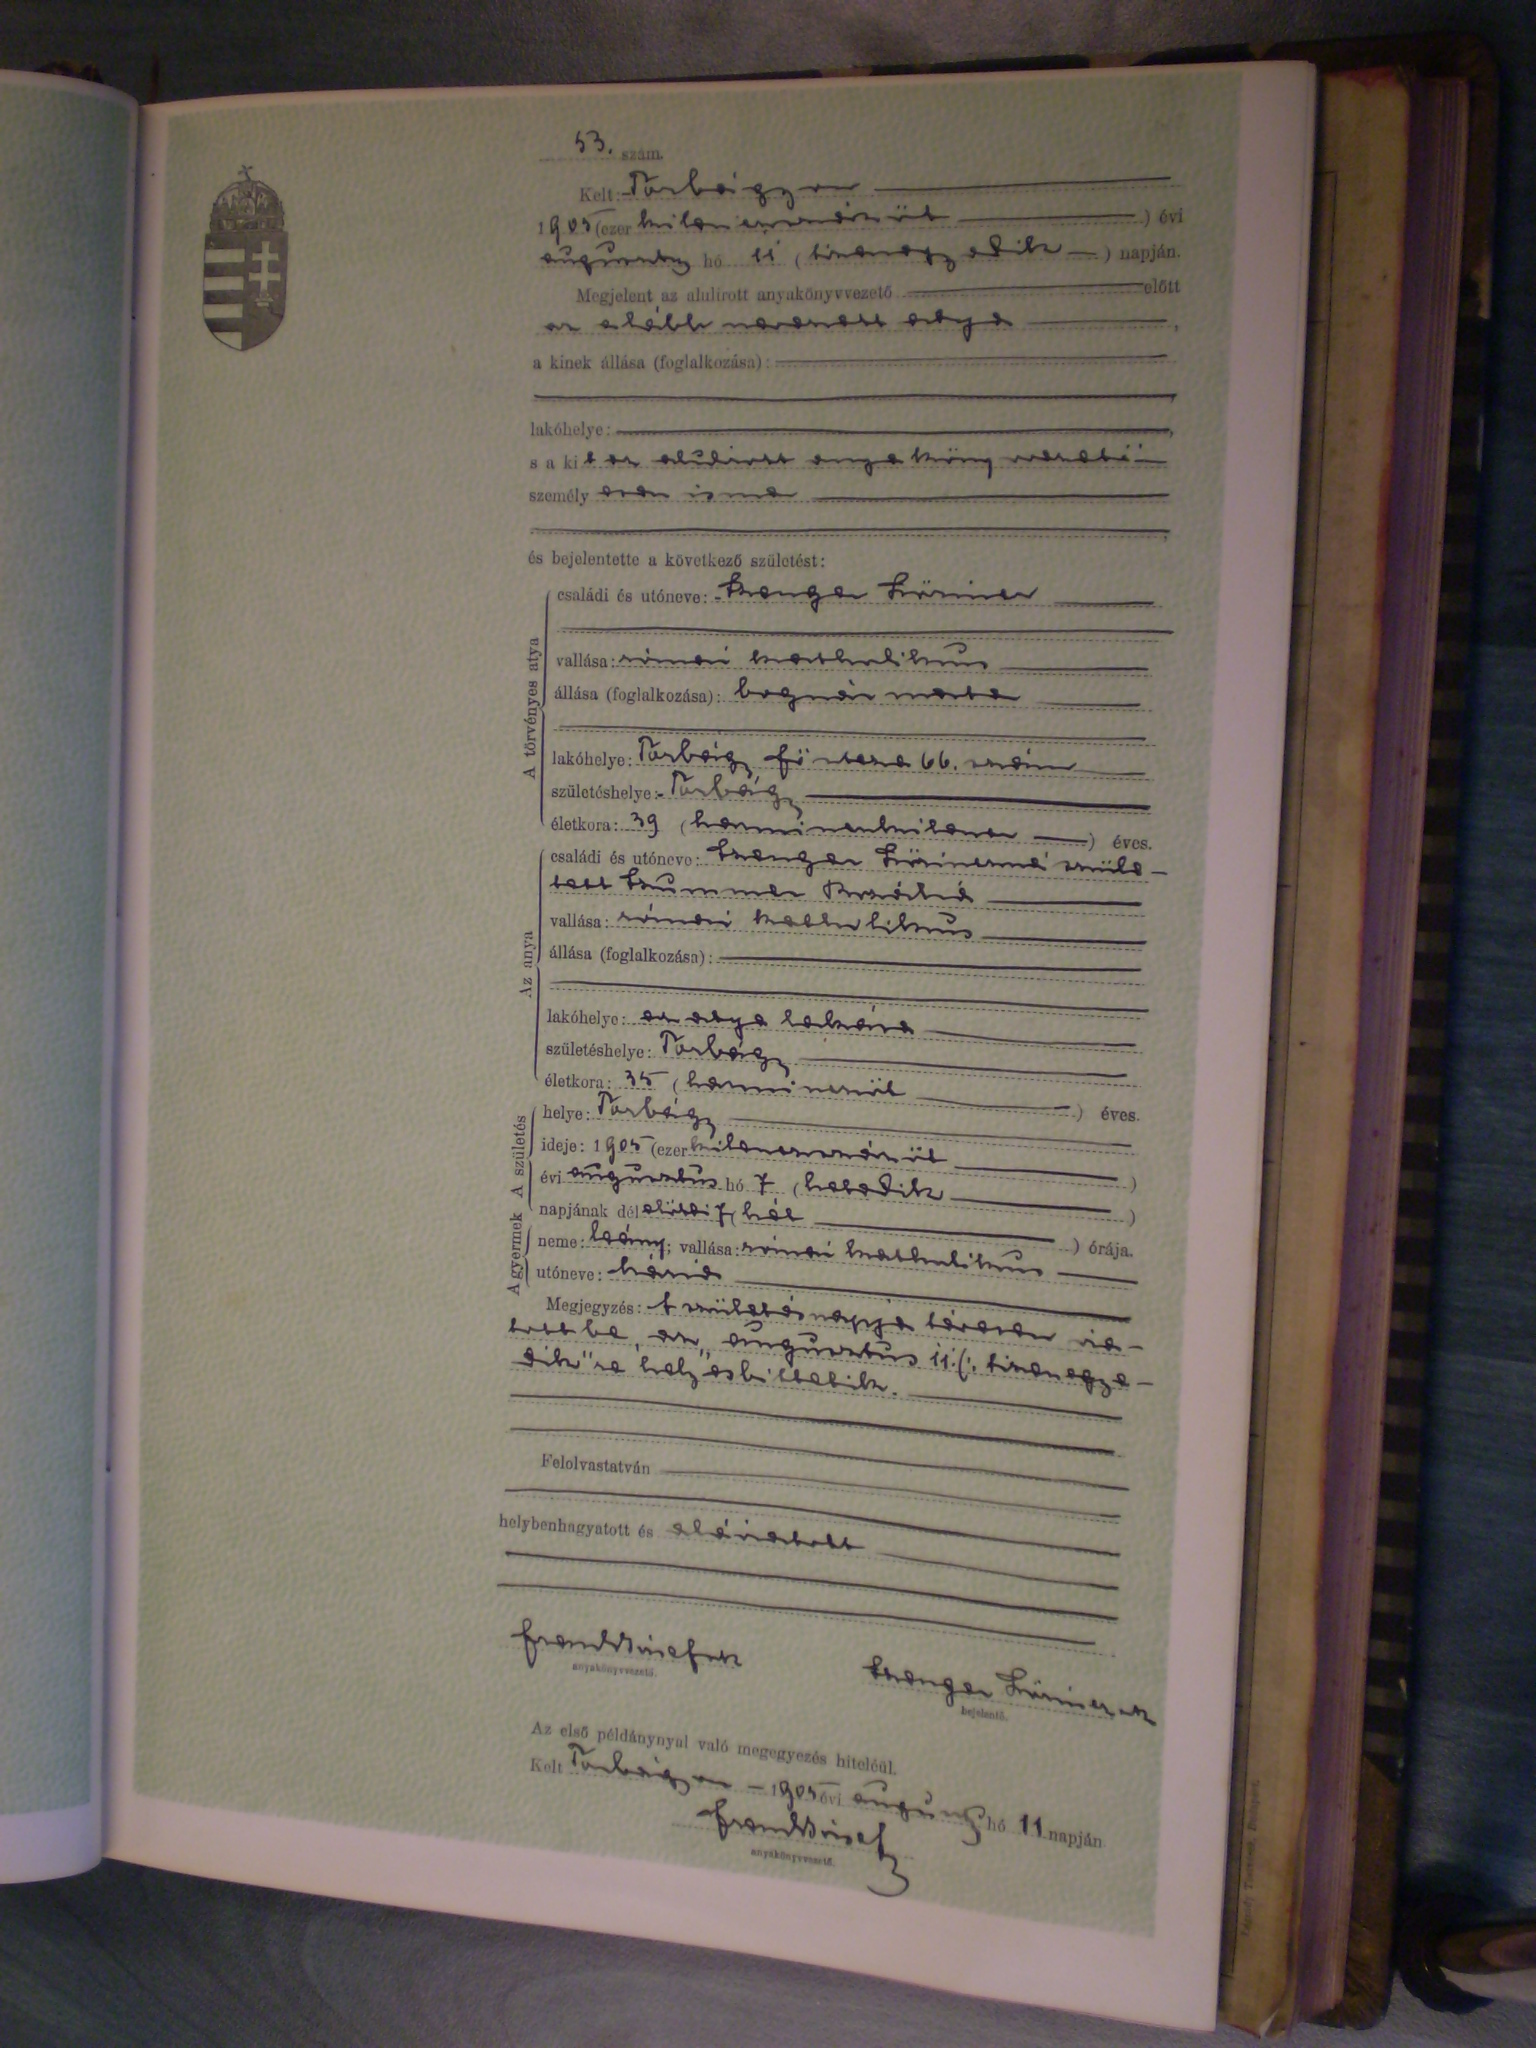 53. szám.
Kelt: Torbágyon
1905 (ezer kilenczszázöt) évi
augusztus hó 11 (tizenegyedik) napján.
Megjelent az alulirott anyakönyvvezető előtt
az alább nevezett atya,
a kinek állása (foglalkozása):
lakóhelye:
s a kit az alulirott anyakönyvvezető
személyesen ismer
és bejelentette a következő születést:
A törvényes atya
családi és utóneve:
vallása: római katholikus
állása (foglalkozása): bognár mester
lakóhelye: Torbágy fő utcza 66. szám
születéshelye: Torbágy
életkora: 39 (harminczkilencz) éves.
Az anya
családi és utóneve: szüle-
tett Rozália
vallása: római katholikus
állása (foglalkozása):
lakóhelye: az atya lakása
születéshelye: Torbágy
életkora: 35 (harminczöt) éves.
A születés
helye: Torbágy
ideje: 1905 (ezer kilenczszázöt)
évi augusztus hó 7 (hetedik)
napjának délelőtti 7 (hét) órája.
A gyermek
neme: leány; vallása: római katholikus
utóneve: Mária
Megjegyzés: A születés napja tévesen ve-
tett be, az „augusztus 11. (: tizenegye-
dik"re helyesbittetik.
Felolvastatván
helybenhagyatott és aláiratott
anyakönyvvezető.
bejelentő.
Az első példánynyal való megegyezés hiteléül.
Kelt Torbágyon 1905 évi hó 11 napján
anyakönyvvezető.